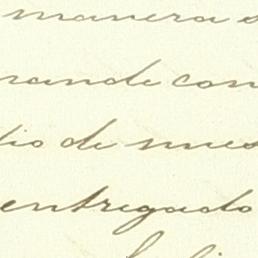 manera
rande con
dio de nues
entregado